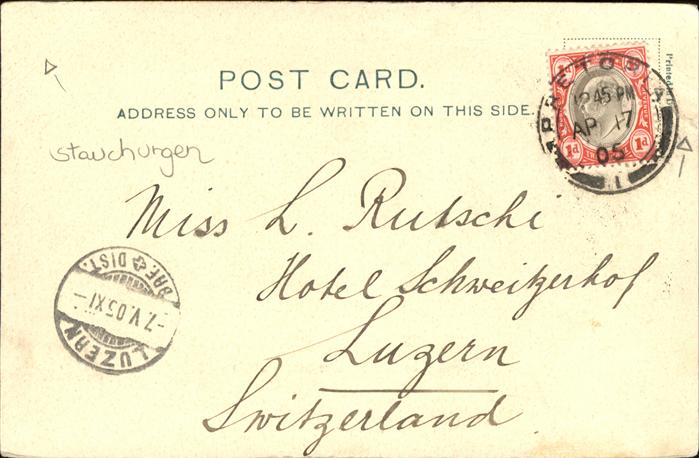 POST CARD.
ADDRESS ONLY TO BE WRITTEN ON THIS SIDE.
Printed
PRETO
12.45 PM
AP 17
05
1
1d 1d
stauchurgen
Miss L. Rutschi
Hotel Schweitzerhof
Luzern
Switzerland.
BRF. DIST.
-7.V.05 XI-
LUZERN